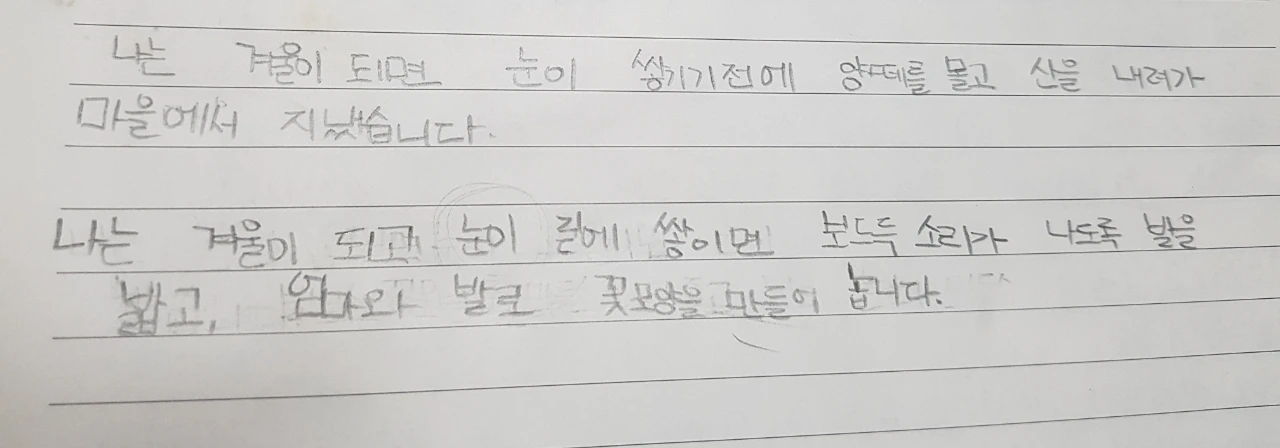 나는 겨울이 되면 눈이 쌓기기전에 양떼를 몰고 산을 내려가
마을에서 지냈습니다.
나는 겨울이 되고 눈이 길에 쌓이면 보드득 소리가 나도록 발을
밟고, 와 발로 꽃모양을 만들어 놉니다.